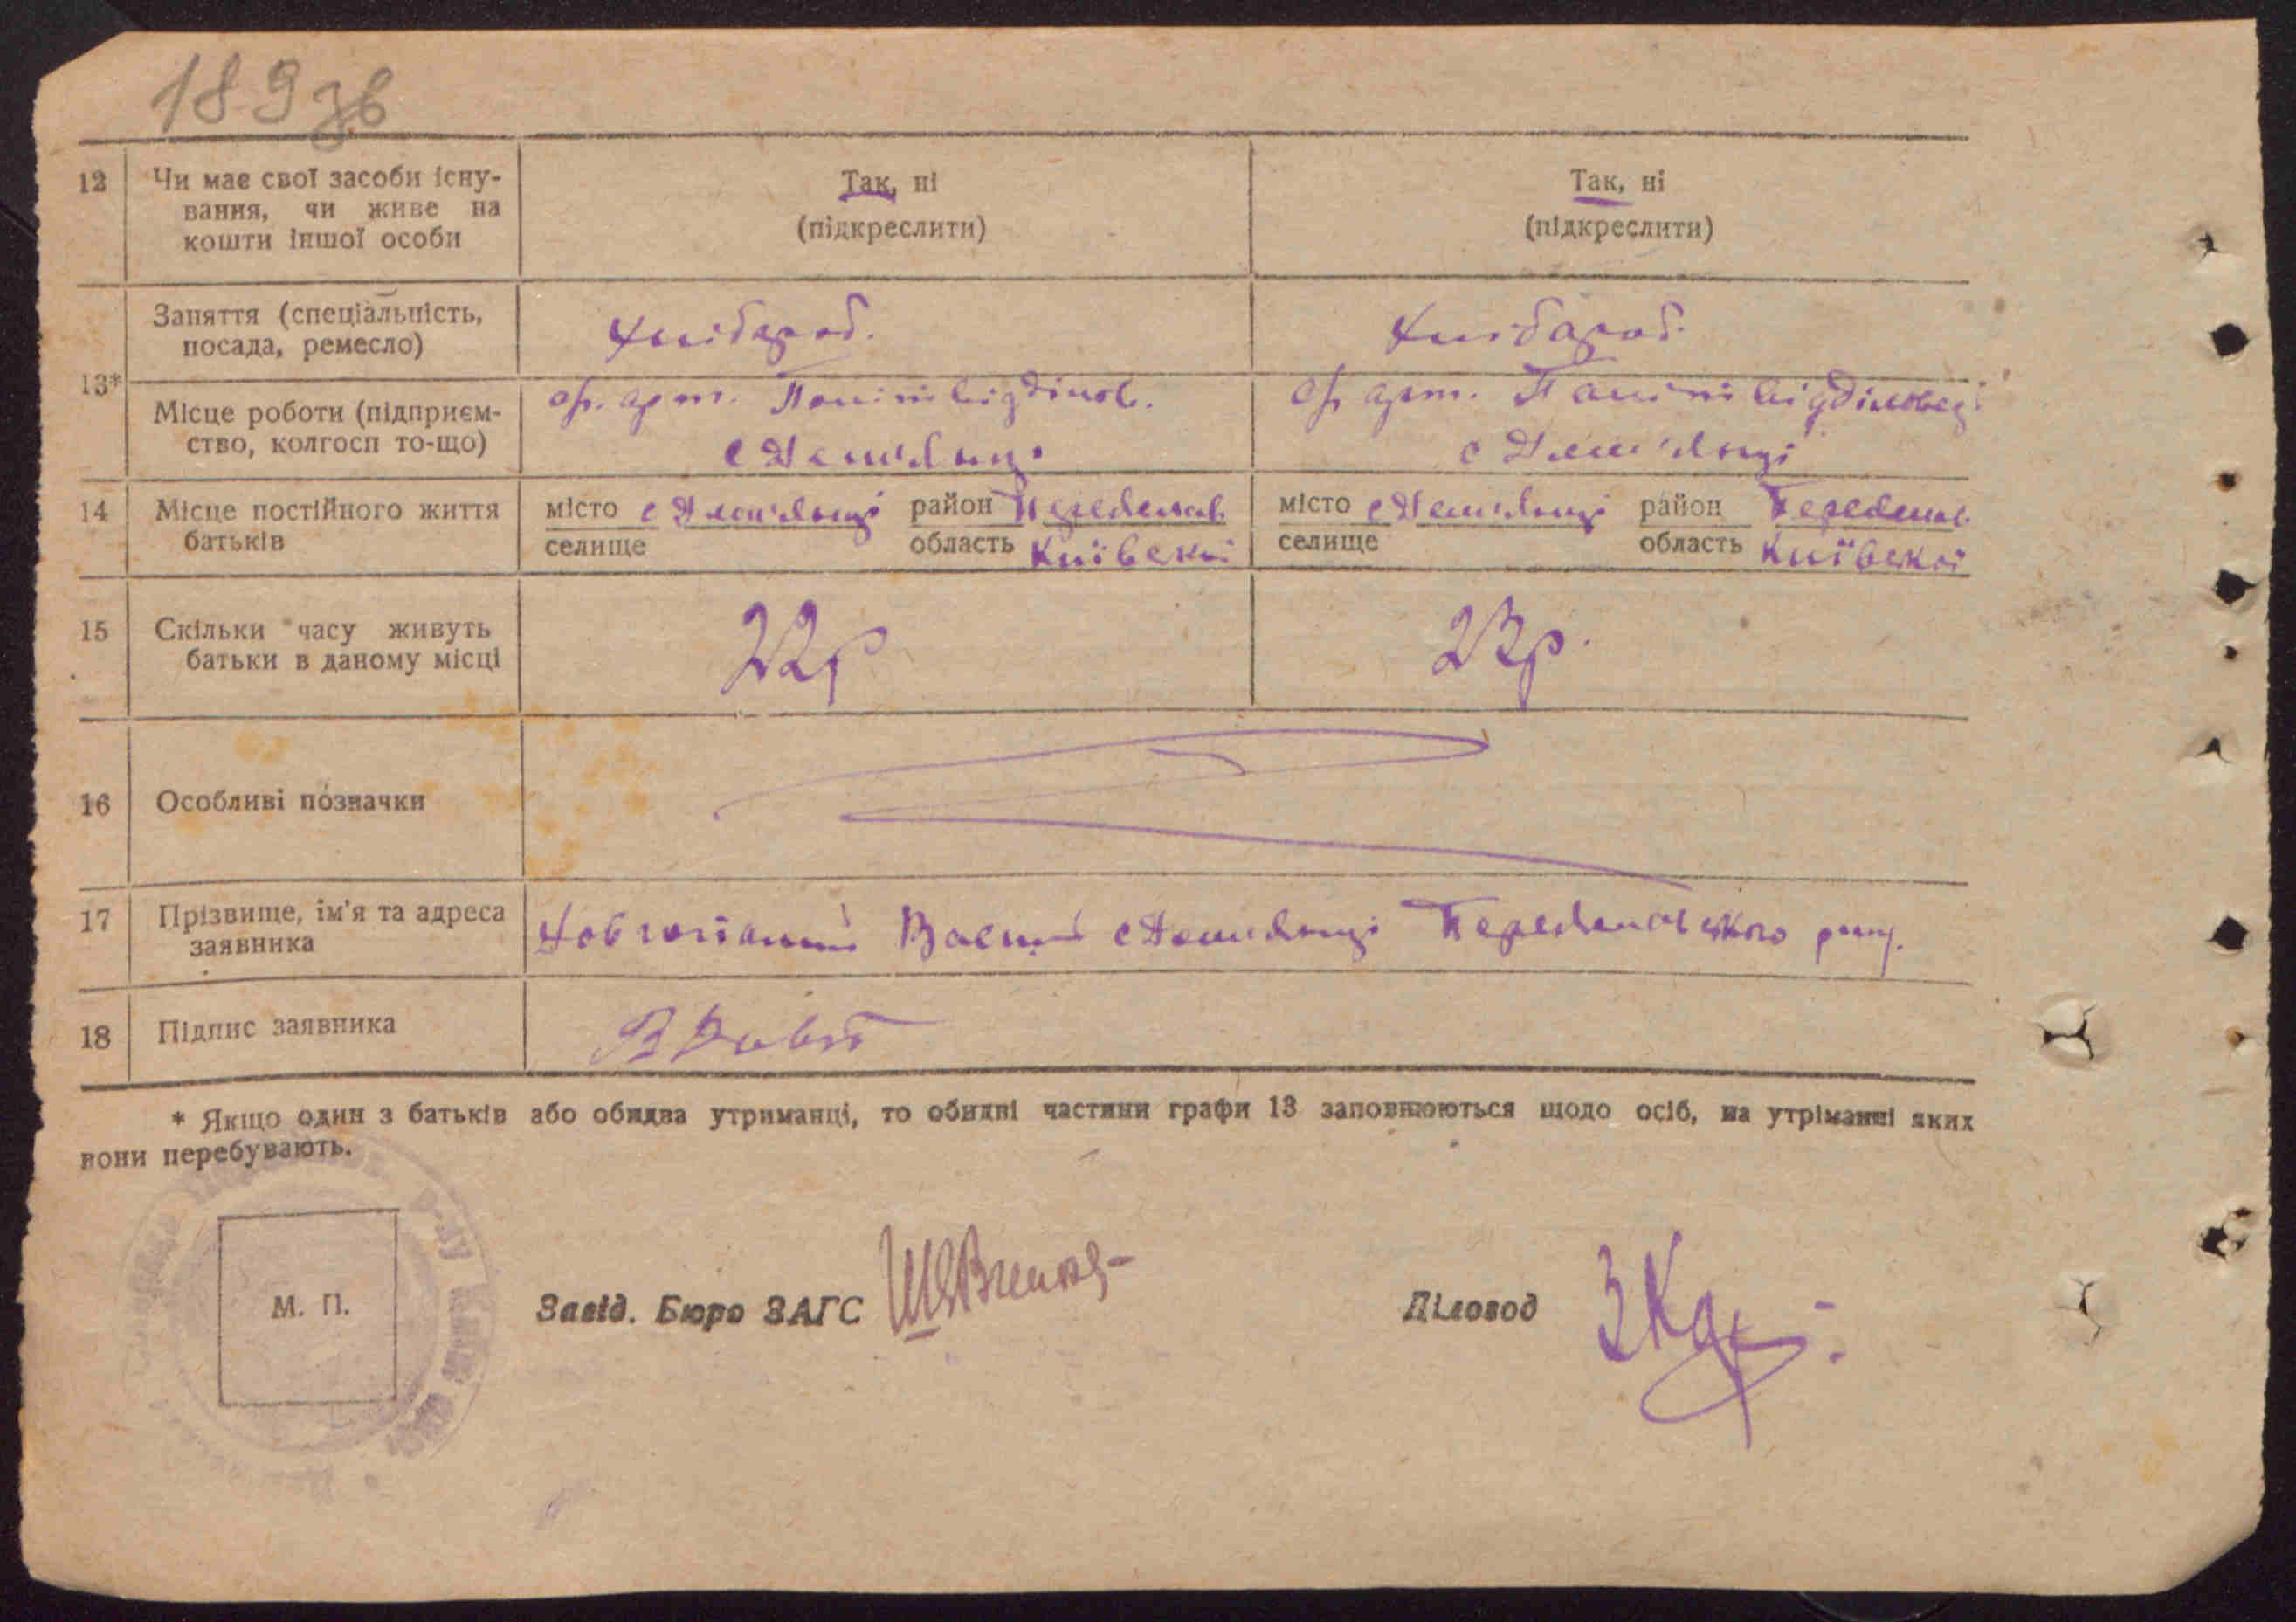 189 зв
12 Чи має свої засоби існу- Так, ні Так, ні
вання, чи живе на (підкреслити) (підкреслити)
кошти іншої особи
13* Заняття (спеціальність, хлібороб. хлібороб.
посада, ремесло)
Місце роботи (підприєм- арт. арт.
ство, колгосп то-що) с Дем'янці с Дем'янці
14 Місце постійного життя місто с Дем'янці район Переяслав. місто с Дем'янці район Переяслав.
батьків селище область Київської селище область Київської
15 Скільки часу живуть 22р 23р.
батьки в даному місці
16 Особливі позначки
17 Прізвище, ім'я та адреса Василь с Дем'янці Переяславского
заявника
18 Підпис заявника
* Якщо один з батьків або обидва утриманці, то обидві частини графи 13 заповнюються щодо осіб, на утріманні яких
вони перебувають.
М. П. Завід. Бюро ЗАГС Діловод